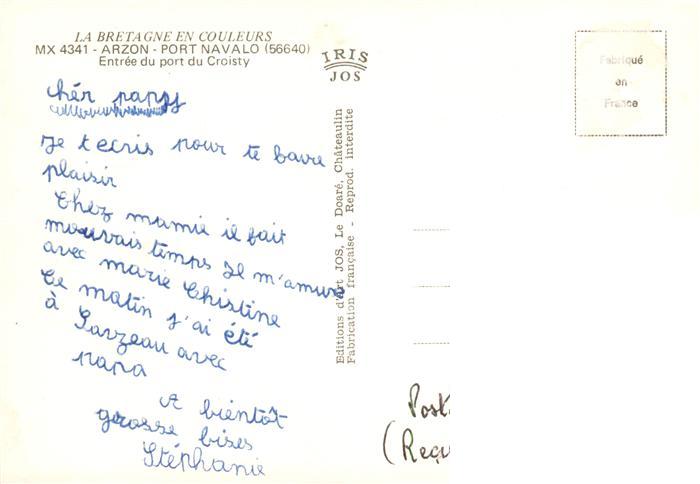 LA BRETAGNE EN COULEURS
MX 4341 - ARZON - PORT NAVALO (56640)
Entrée du port du Croisty
IRIS
JOS
Fabriqué
en
France
chér papy
Je t ecris pour te baire
plaisir
Chez mamie il fait
mauvais temps Je m'amuse
avec marie Christine
Ce matin j'ai été
à Sarzeau avec
papa
A bientôt
grosse bises
Stéphanie
Editions d'art JOS, Le Doaré, Châteaulin
Fabrication française - Reprod. interdite
Post
(Reçu